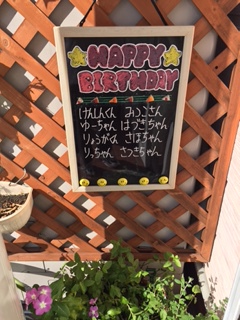 HAPPY
BIRTHDAY
けんしんくん みつこさん
ゆーちゃん はづきちゃん
りょうがくん さほちゃん
りっちゃん さつきちゃん